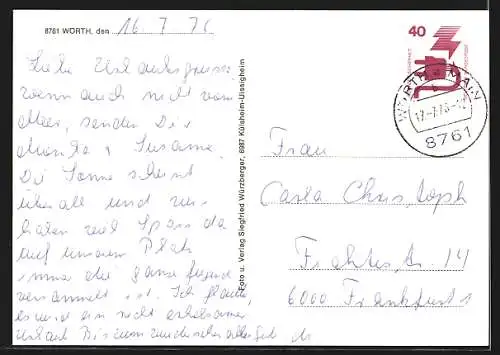 8761 WÖRTH, den 16.7.76
Liebe Urlaubsgrüsse
wenn auch nicht vom
Meer, senden Dir
Monika + Susanne.
Die Sonne scheint
überall und wir
haben viel Spass da
auf unserem Platz
immer die ganze Jugend
versammelt ist. Ich glaube,
es wird ein nicht erholsamer
Urlaub. Bis zum
Foto u. Verlag Siegfried Würzberger, 6987 Külsheim-Uissigheim
40
WÖRTH a. MAIN
17.7.76
8761
Frau
Carla Christoph
14
6000 Frankfurt 1